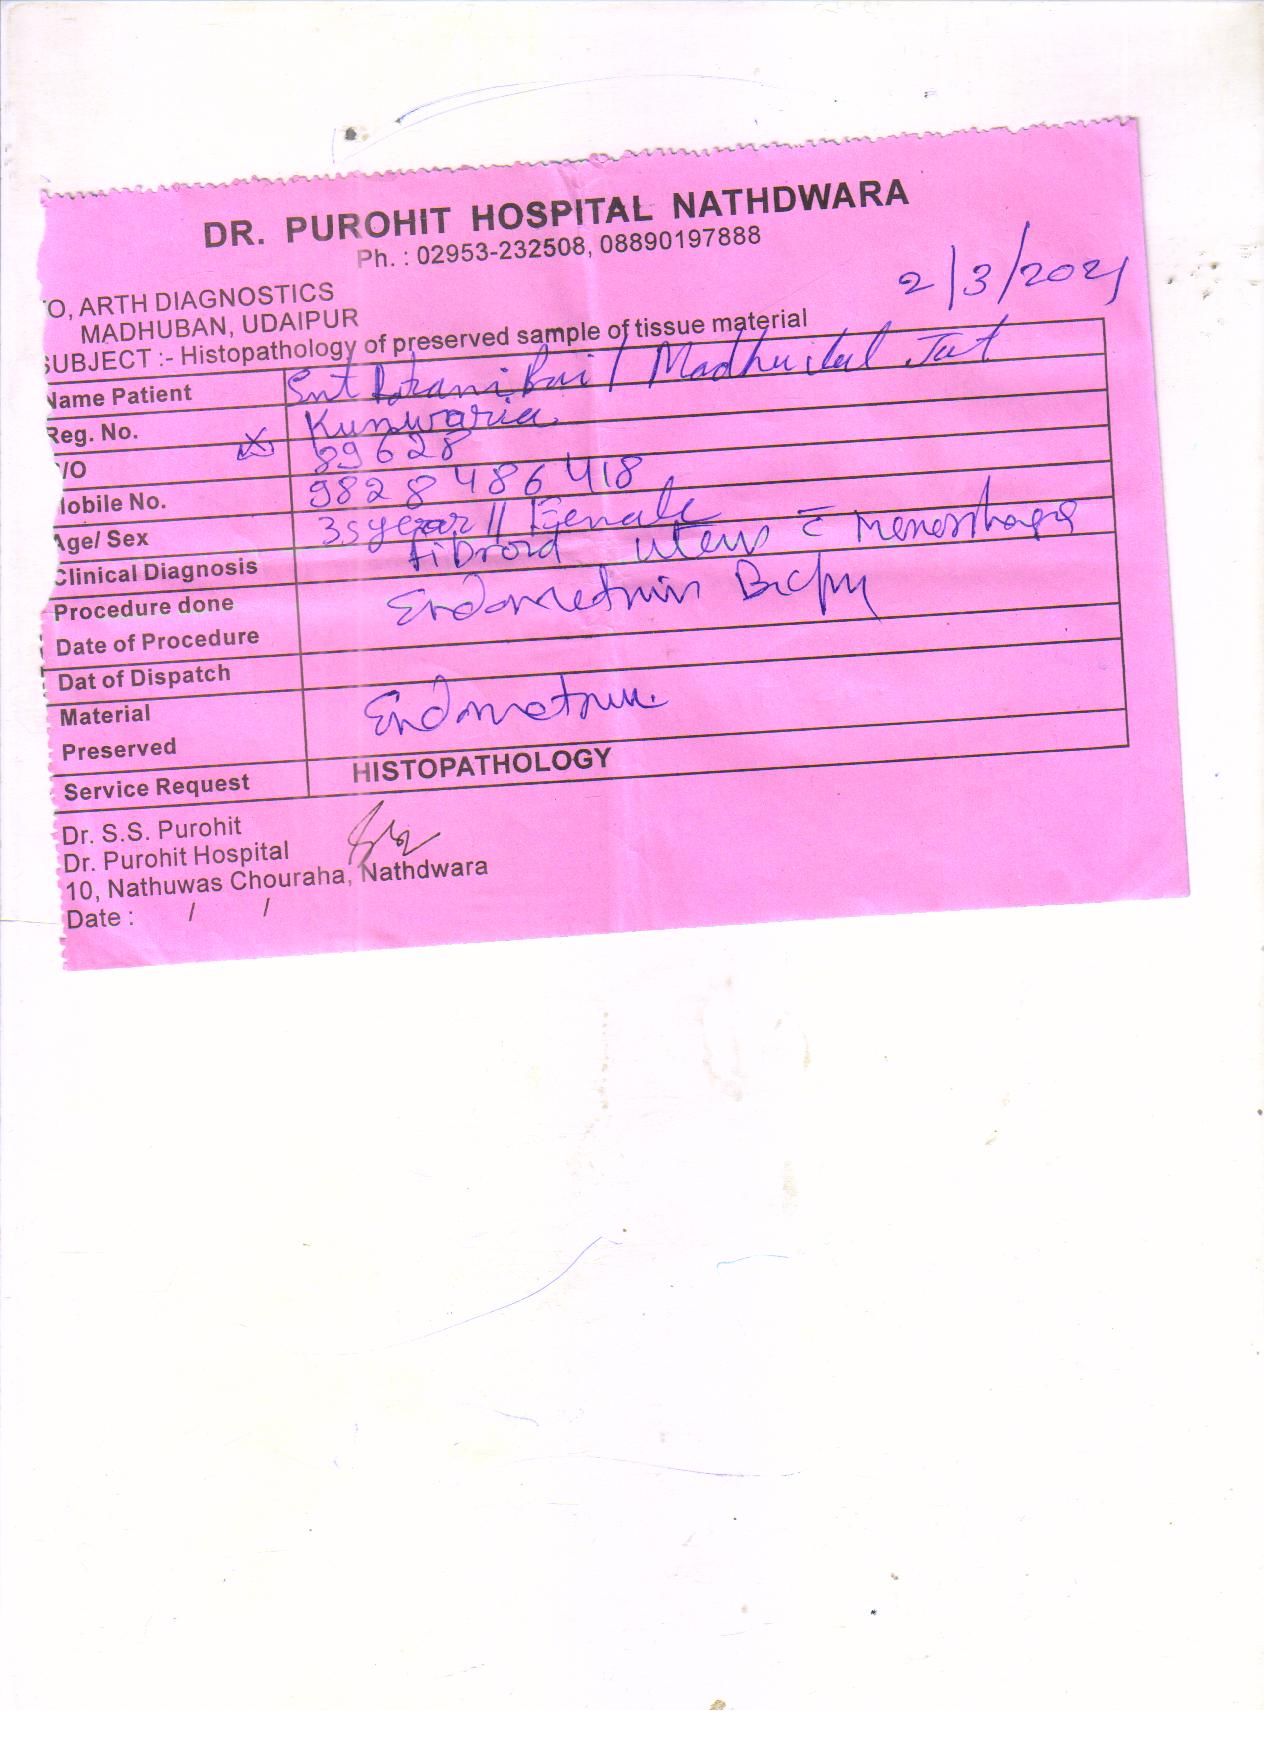 DR. PUROHIT HOSPITAL NATHDWARA
Ph. : 02953-232508, 08890197888
2/3/2021
O, ARTH DIAGNOSTICS
MADHUBAN, UDAIPUR
SUBJECT :- Histopathology of preserved sample of tissue material
Name Patient Smt Bai / Madhu Lal Jat
Reg. No. Kunwaria
/O 89628
Mobile No. 9828486418
Age/ Sex 35 year // Female
Clinical Diagnosis Fibroid uterus c̄ Menorrhagia
Procedure done Endometrium Biopsy
Date of Procedure
Dat of Dispatch
Material
Preserved Endometrium
Service Request HISTOPATHOLOGY
Dr. S.S. Purohit
Dr. Purohit Hospital
10, Nathuwas Chouraha, Nathdwara
Date : / /